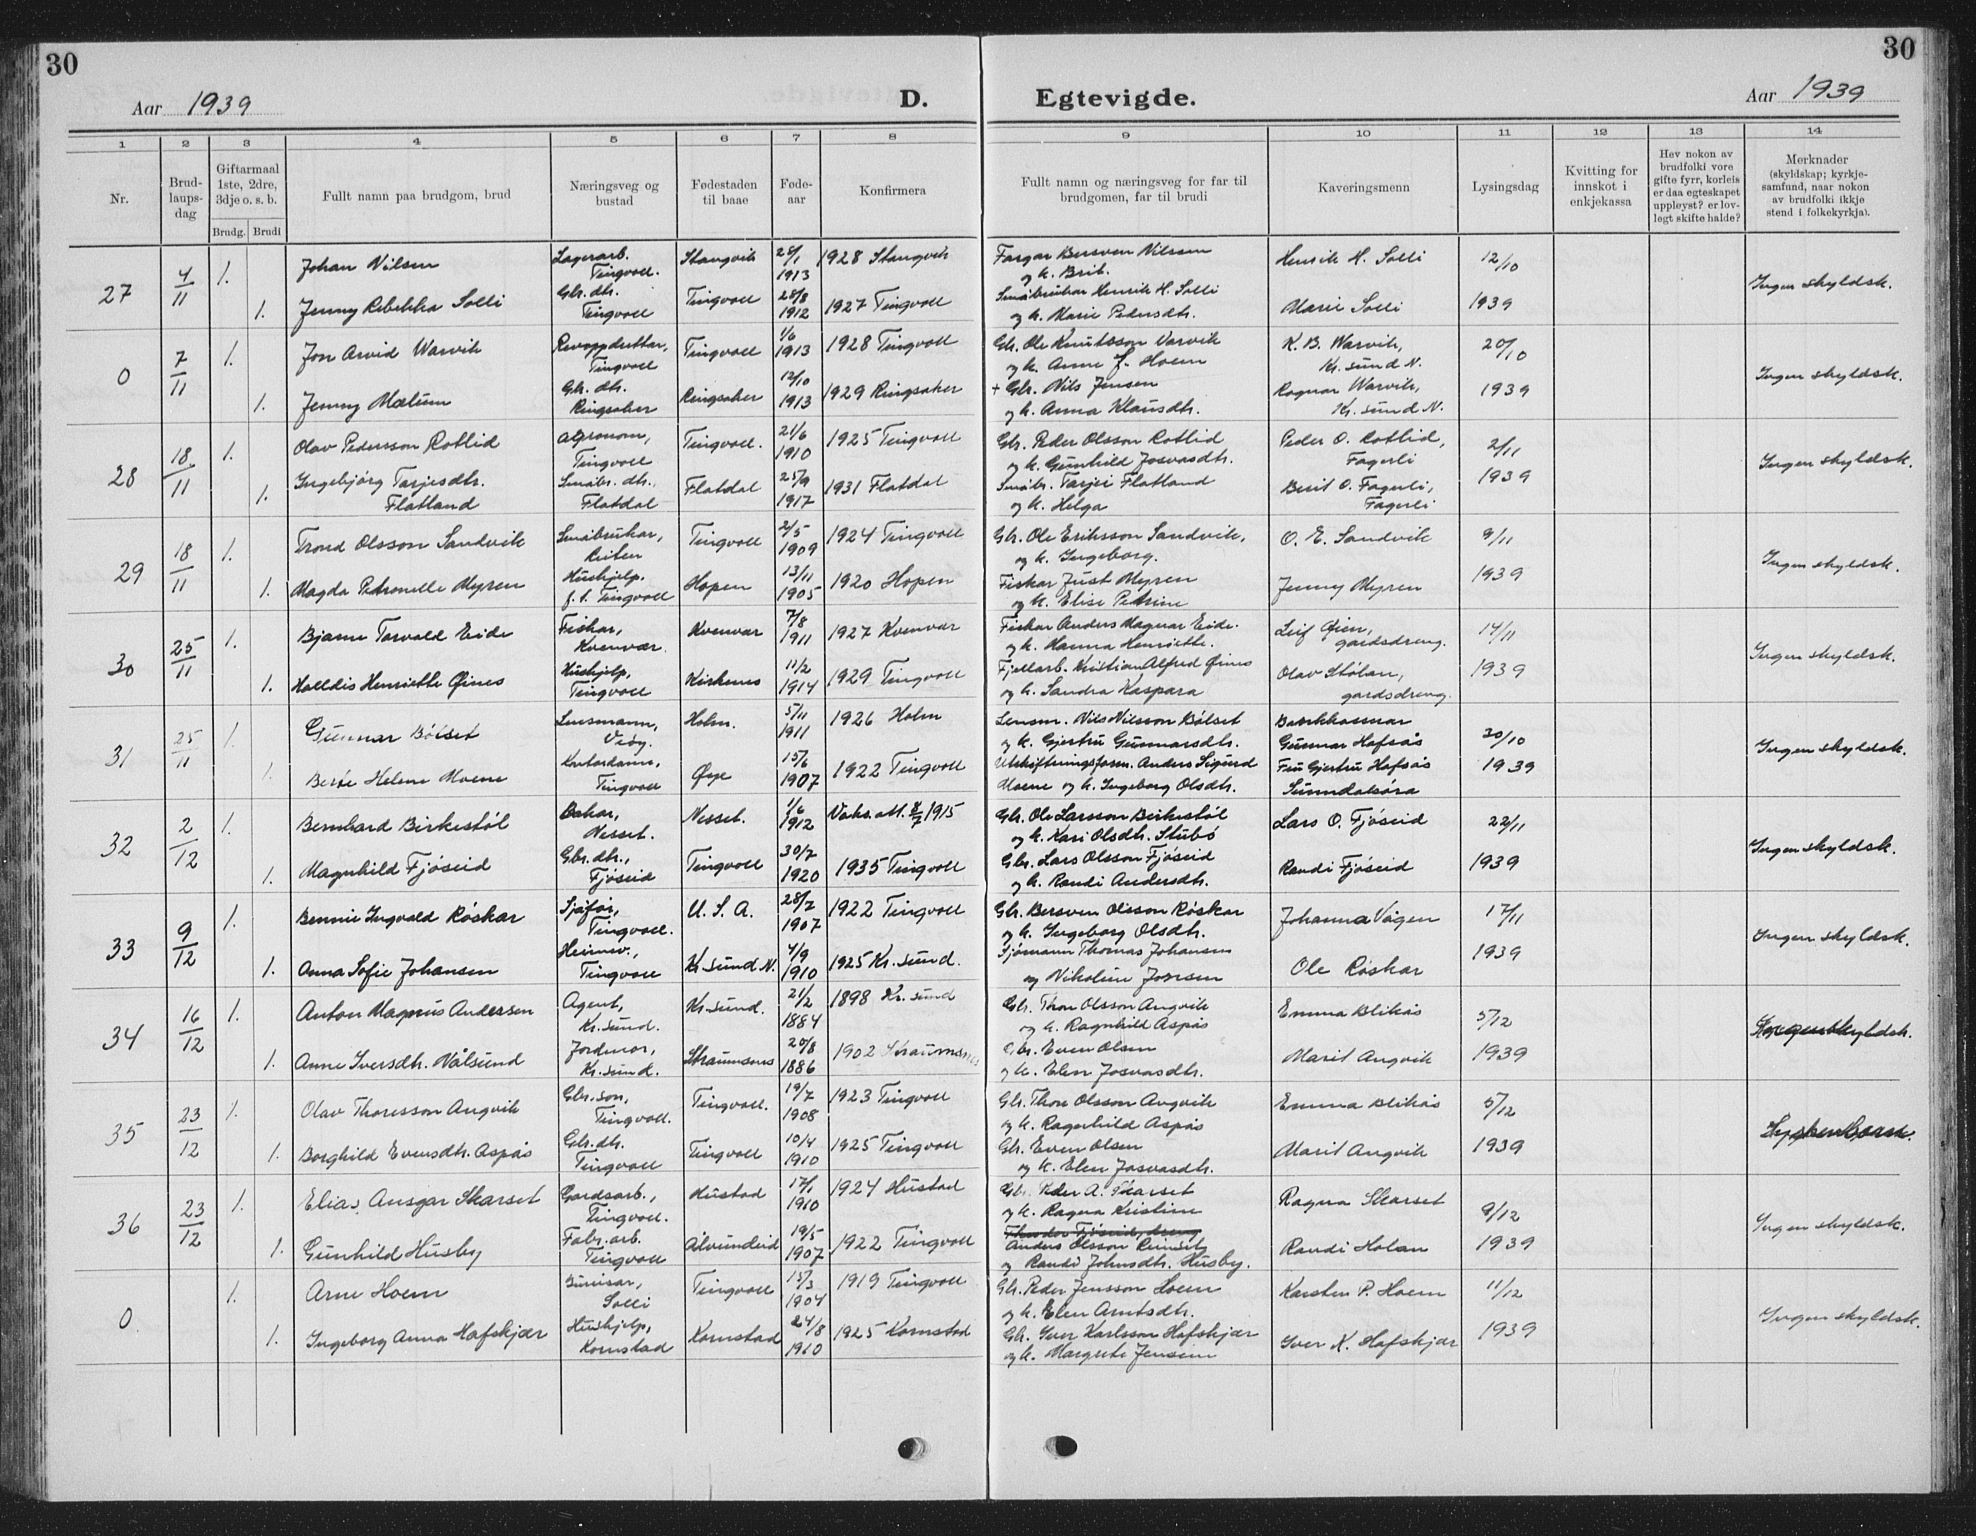 30
Aar 1939
D.
Egtevigde.
Aar 1939
30
1 2 3 4 5 6 7 8 9 10 11 12 13 14
Nr.
Brud-
laups-
dag
Giftarmaal
1ste, 2dre,
3dje o. s. b.
Brudg. Brudi
Fullt namn paa brudgom, brud
Næringsveg og
bustad
Fødestaden
til baae
Føde-
aar
Konfirmera
Fullt namn og næringsveg for far til
brudgomen, far til brudi
Kaveringsmenn
Lysingsdag
Kvitting for
innskot i
enkjekassa
Hev nokon av
brudfolki vore
gifte fyrr, korleis
er daa egteskapet
uppløyst? er lov-
legt skifte halde?
Merknader
(skyldskap; kyrkje-
samfund, naar nokon
av brudfolki ikkje
stend i folkekyrkja).
27 4/11 1. Johan Nilsen Lagerarb. Tingvoll. Stangvik 28/1 1913 1928 Stangvik Farger Bersven Nilssen og k. Brit. Henrik H. Solli 12/10
1. Jenny Rebekka Solli Gbr. dtr. Tingvoll Tingvoll 28/8 1912 1927 Tingvoll Småbrukar Henrik H. Solli og k. Marie Pedersdtr. Marie Solli 1939 Ingen skyldsk.
0 7/11 1. Jon Arvid Warvik Revoppdrettar, Tingvoll Tingvoll 1/6 1913 1928 Tingvoll Gbr. Ole Knutsson Varvik og k. Anne J. Hoem K. B. Warvik, Kr. sund N. 20/10
1. Jenny Mælum Gbr. dtr. Ringsaker Ringsaker 12/10 1913 1929 Ringsaker + Gbr. Nils Jensen og k. Anna Klausdtr. Ragnar Warvik, Kr. sund N. 1939 Ingen skyldsk.
28 18/11 1. Olav Pedersson Rotlid Agronom, Tingvoll Tingvoll. 21/6 1910 1925 Tingvoll Gbr. Peder Olsson Rotlid og k. Gunhild Josvasdtr. Peder O. Rotlid, Fagerli 2/11
1. Ingebjørg Tarjesdtr. Flatland Småbr. dtr., Flatdal Flatdal 25/9 1917 1931 Flatdal Småbr. Tarjei Flatland og k. Helga Berit O. Fagerli, Fagerli 1939 Ingen skyldsk.
29 18/11 1. Trond Olsson Sandvik Småbrukar, Reiten Tingvoll 2/5 1909 1924 Tingvoll Gbr. Ole Eriksson Sandvik, og k. Ingeborg. O. E. Sandvik 9/11
1. Magda Petronelle Myren Hushjelp. f. t. Tingvoll Hopen 13/11 1905 1920 Hopen Fiskar Just Myren og k. Elise Petrine Jenny Myren 1939 Ingen skyldsk.
30 25/11 1. Bjarne Torvald Eide Fiskar, Kvenvær. Kvenvær 7/8 1911 1927 Kvenvær Fiskar Anders Magnar Eide. og k. Hanna Henriette. Leif Øien, gardsdreng. 14/11
1. Halldis Henriette Øines Hushjelp, Tingvoll Kirkenes 11/2 1914 1929 Tingvoll Fjellarb. Kristian Alfred Øines og k. Sandra Kaspara Olav Stølan, gardsdreng. 1939 Ingen skyldsk.
31 25/11 1. Gunnar Bølset Lensmann, Veøy. Holm. 5/11 1911 1926 Holm Lensm. Nils Nilsson Bølset og k. Gjertru Gunnarsdtr. Bankkasserar Gunnar Hafsås 30/10
1. Helene Moene Kontordame, Tingvoll Øye 15/6 1907 1922 Tingvoll Utskiftningsform. Anders Sigurd Moene og k. Ingeborg Olsdtr. Fru Gjertru Hafsås Sunndalsøra 1939 Ingen skyldsk.
32 2/12 1. Bernhard Birkestøl Bakar, Nesset. Nesset. 1/6 1912 Vaks. att. 1915 Gbr. Ole Larsson Birkestøl og k. Kari Olsdtr. Stubø Lars O. Fjøseid 22/11
1. Magnhild Fjøseid Gbr. dtr., Fjøseid Tingvoll 30/7 1920 1935 Tingvoll Gbr. Lars Olsson Fjøseid og k. Randi Andersdtr. Randi Fjøseid 1939 Ingen skyldsk.
33 9/12 1. Bennie Ingvald Røskar Sjåfør, Tingvoll. U. S. A. 28/7 1907 1922 Tingvoll Gbr. Bersven Olsson Røskar og k. Ingeborg Olsdtr. Johanna Vågen 17/11
1. Anna Sofie Johansen Heimev., Tingvoll Kr. sund N. 4/9 1910 1925 Kr. sund. Sjømann Thomas Johansen og Nikoline Jonsen Ole Røskar 1939 Ingen skyldsk.
34 16/12 1. Anton Magnus Andersen Agent, Kr. sund. Kr. sund. 21/2 1884 1898 Kr. sund Gbr. Thore Olsson Angvik og k. Ragnhild Aspås Emma Blikås 5/12
1. Anne Iversdtr. Vålsund Jordmor, Kr. sund. Straumsnes 20/8 1886 1902 Straumsnes Gbr. Even Olsen og k. Elen Josvasdtr. Marit Angvik 1939 Ingen skyldsk.
35 23/12 1. Olav Thoresson Angvik Gbr. son, Tingvoll. Tingvoll. 19/7 1908 1923 Tingvoll Gbr. Thore Olsson Angvik og k. Ragnhild Aspås Emma Blikås 5/12
1. Borghild Evensdtr. Aspås Gbr. dtr. Tingvoll Tingvoll 10/4 1910 1925 Tingvoll Gbr. Even Olsen og k. Elen Josvasdtr. Marit Angvik 1939 Syskenbarn.
36 23/12 1. Elias Ansgar Skarset Gardsarb., Tingvoll. Hustad 17/1 1910 1924 Hustad Gbr. Peder A. Skarset og k. Ragna Kristine Ragna Skarset 9/12
1. Gunhild Husby Fabr. arb. Tingvoll Ålvundeid 19/5 1907 1922 Tingvoll Anders Olsson og Randi Johnsdtr. Husby. Randi Holan 1939 Ingen skyldsk.
0 1. Arne Hoem Buvisar, Solli Tingvoll 15/3 1904 1919 Tingvoll Gbr. Peder Jensson Hoem og k. Elen Arntsdtr. Karsten P. Hoem 11/12
1. Ingeborg Anna Hafskjær Hushjelp, Kornstad Kornstad 24/8 1910 1925 Kornstad Gbr. Iver Karlsson Hafskjær og k. Margrete Jensine Iver K. Hafskjær 1939 Ingen skyldsk.